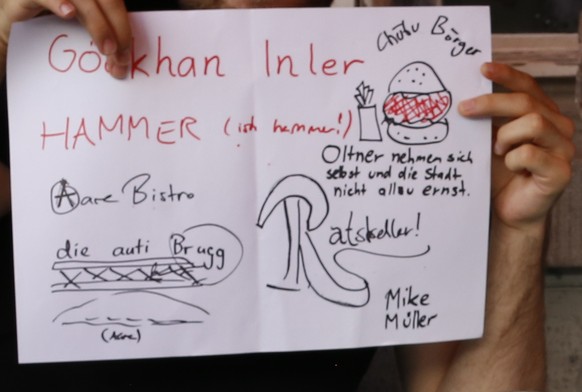 Gökhan Inler
Chübu Börger
HAMMER (isch hammer!)
Oltner nehmen sich
selbst und die Stadt
nicht allzu ernst.
Aare Bistro
die alti Brugg
(Aare)
Ratskeller!
Mike
Müller